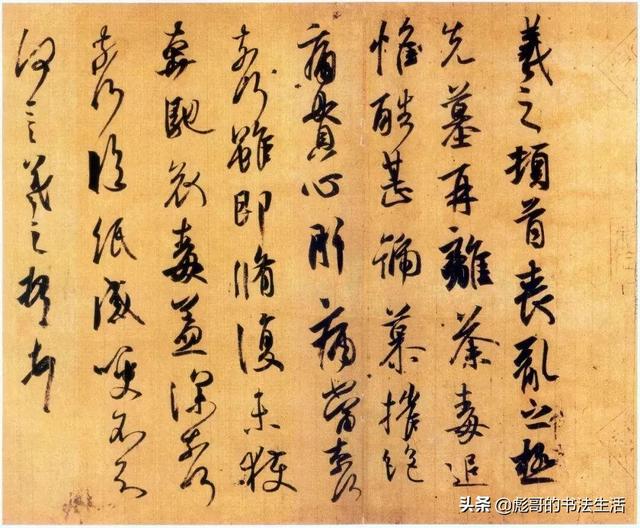 羲之頓首喪亂之極
先墓再離荼毒追
惟酷甚號慕摧絕
痛貫心肝痛當奈何
奈何雖即脩復未獲
奔馳哀毒益深奈何
奈何臨紙感哽不知
何言羲之頓首頓首
头条 @彪哥的书法生活